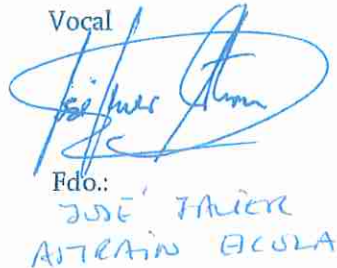 Vocal
José Javier Astrain
Fdo.:
JOSÉ JAVIER
ASTRAIN ESCOLA